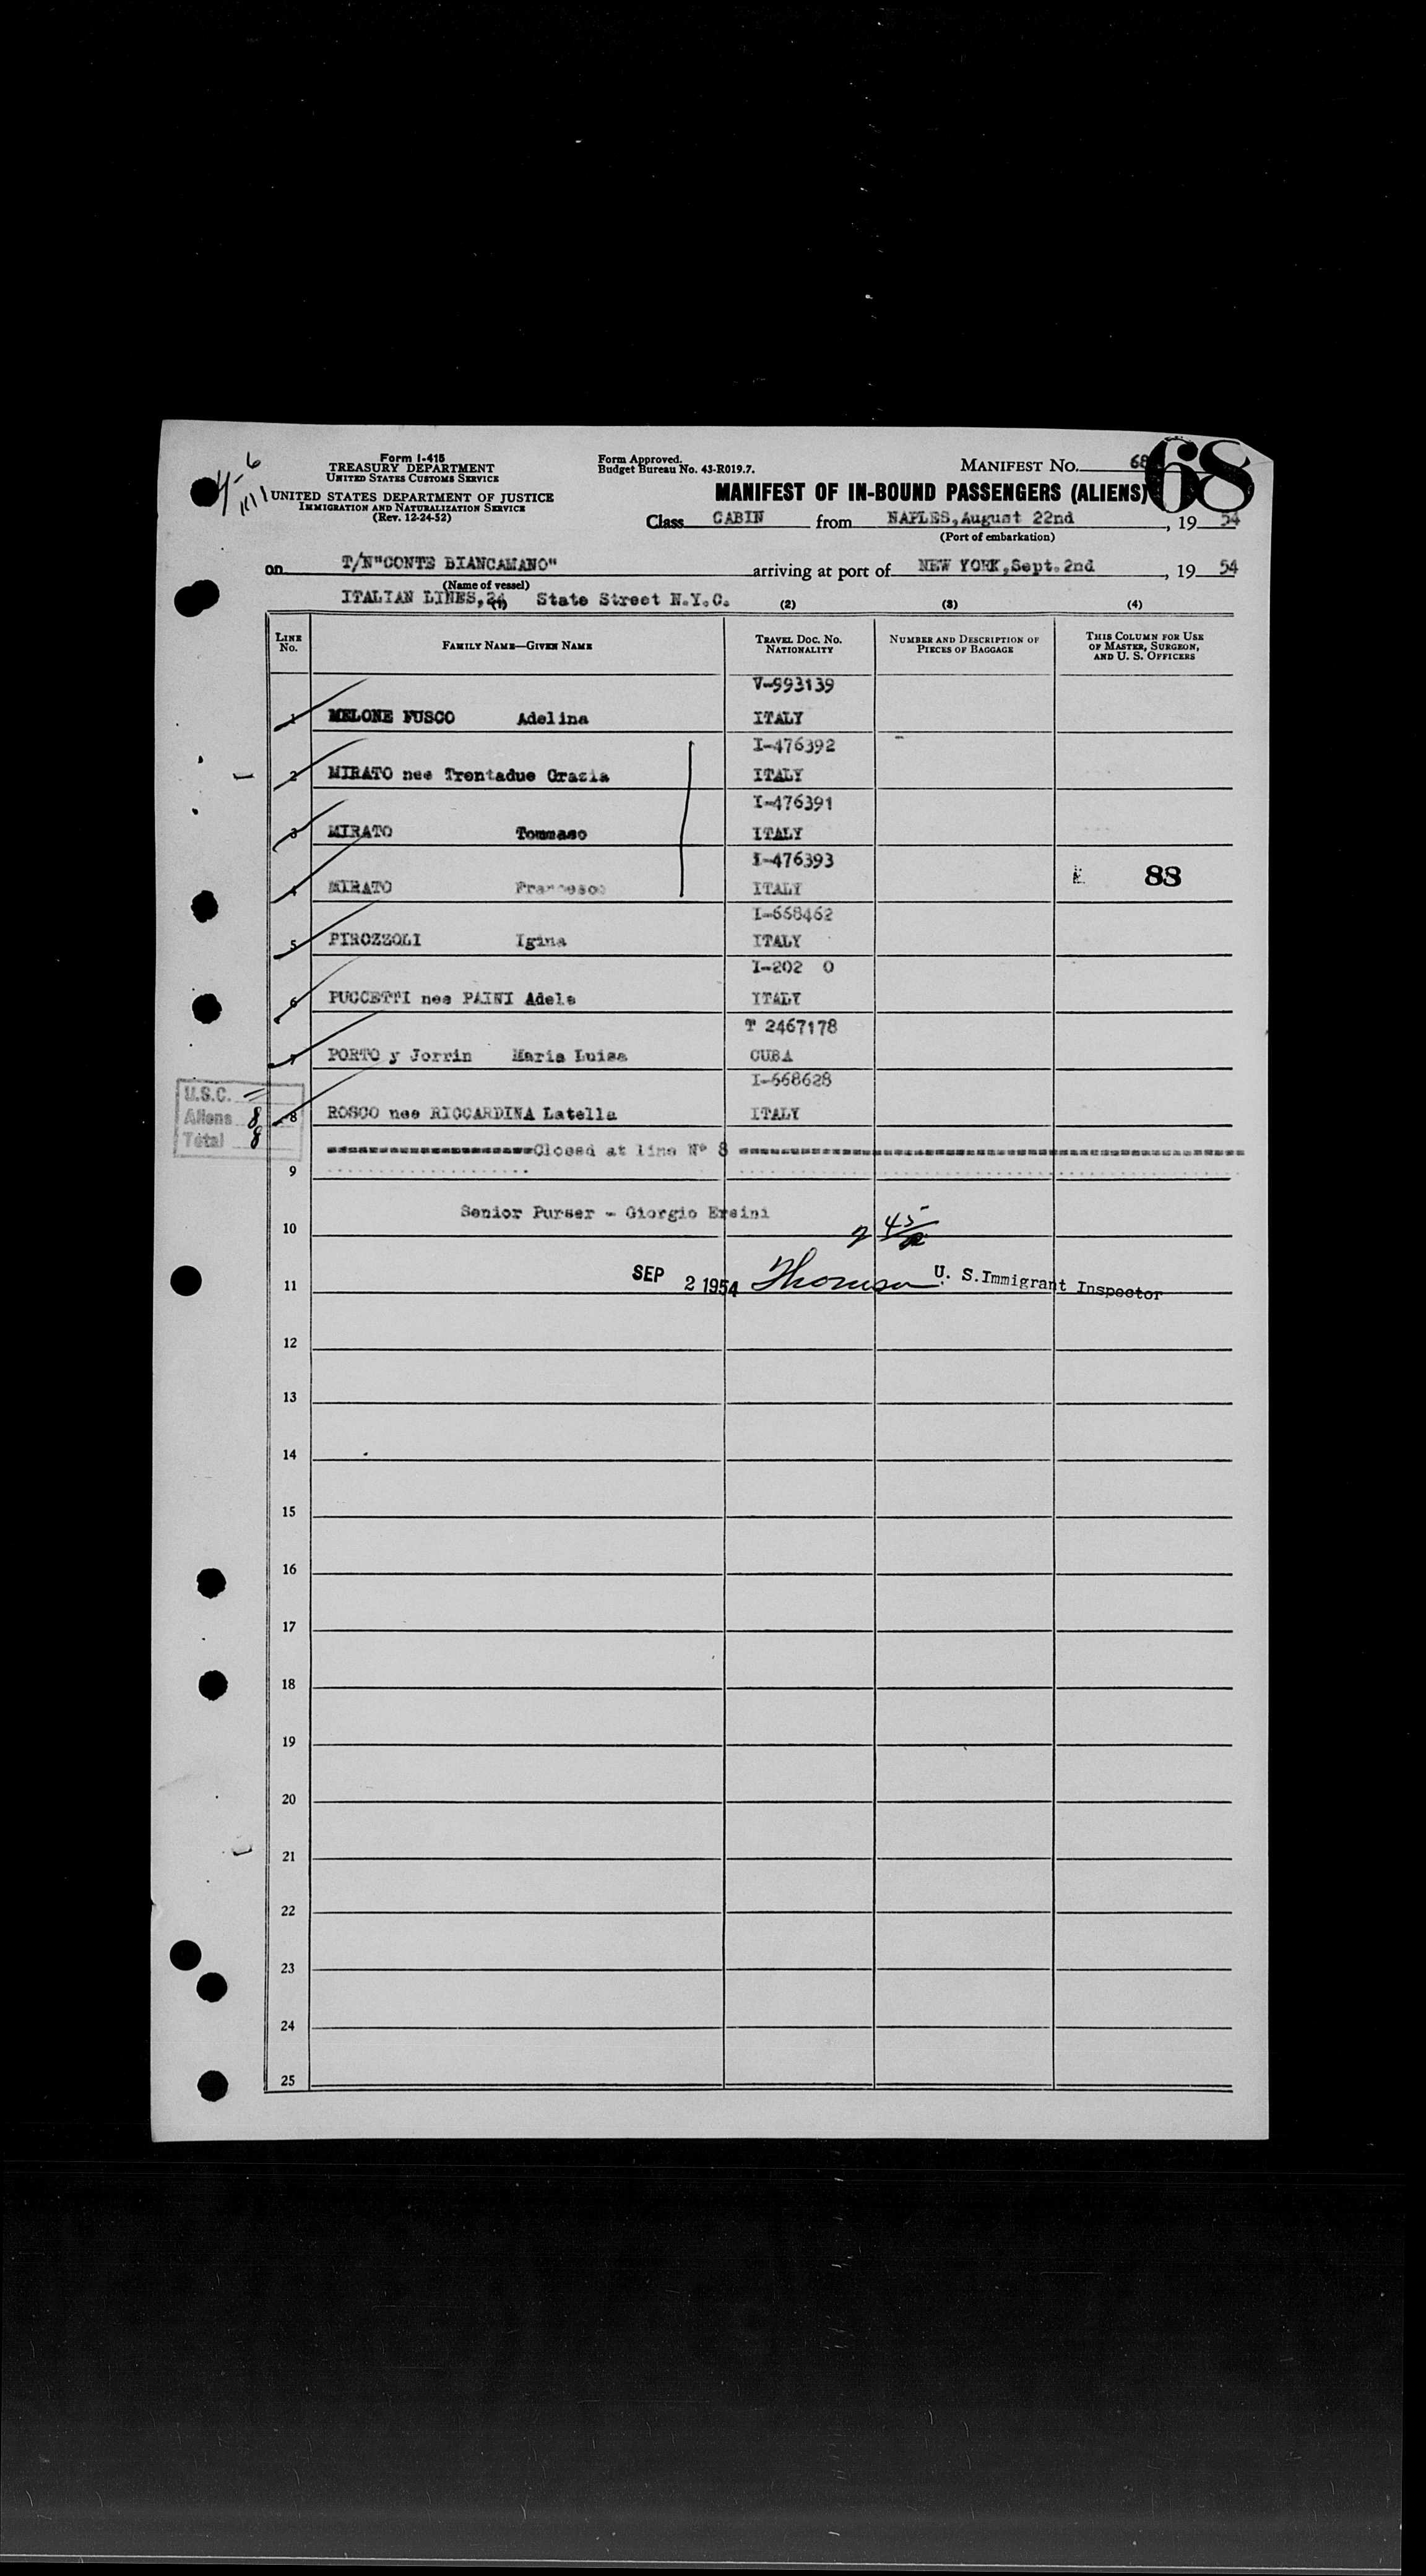 4-6
Form I-415
TREASURY DEPARTMENT
UNITED STATES CUSTOMS SERVICE
UNITED STATES DEPARTMENT OF JUSTICE
IMMIGRATION AND NATURALIZATION SERVICE
(Rev. 12-24-52)
Form Approved.
Budget Bureau No. 43-R019.7.
MANIFEST NO. 68
68
MANIFEST OF IN-BOUND PASSENGERS (ALIENS)
Class CABIN from NAPLES, August 22nd, 19 54
(Port of embarkation)
on T/N"CONTE BIANCAMANO" arriving at port of NEW YORK, Sept. 2nd, 19 54
(Name of vessel)
ITALIAN LINES, 24 State Street N.Y.C.
(1) (2) (3) (4)
LINE NO. FAMILY NAME—GIVEN NAME TRAVEL DOC. NO. NATIONALITY NUMBER AND DESCRIPTION OF PIECES OF BAGGAGE THIS COLUMN FOR USE OF MASTER, SURGEON, AND U. S. OFFICERS
V-993139
1 MELONE FUSCO Adelina ITALY
I-476392
2 MIRATO nee Trentadue Grazia ITALY
I-476391
3 MIRATO Tommaso ITALY
I-476393
4 MIRATO Francesco ITALY 88
I-668462
5 PIROZZOLI Igina ITALY
I-202 0
6 PUCCETTI nee PAINI Adele ITALY
T 2467178
7 PORTO y Jorrin Maria Luisa CUBA
I-668628
8 ROSCO nee RICCARDINA Latella ITALY
U.S.C.
Aliens 8
Total 8
Closed at line Nº 8
9
Senior Purser - Giorgio Ersini
10 45
SEP 2 1954 U. S. Immigrant Inspector
11
12
13
14
15
16
17
18
19
20
21
22
23
24
25